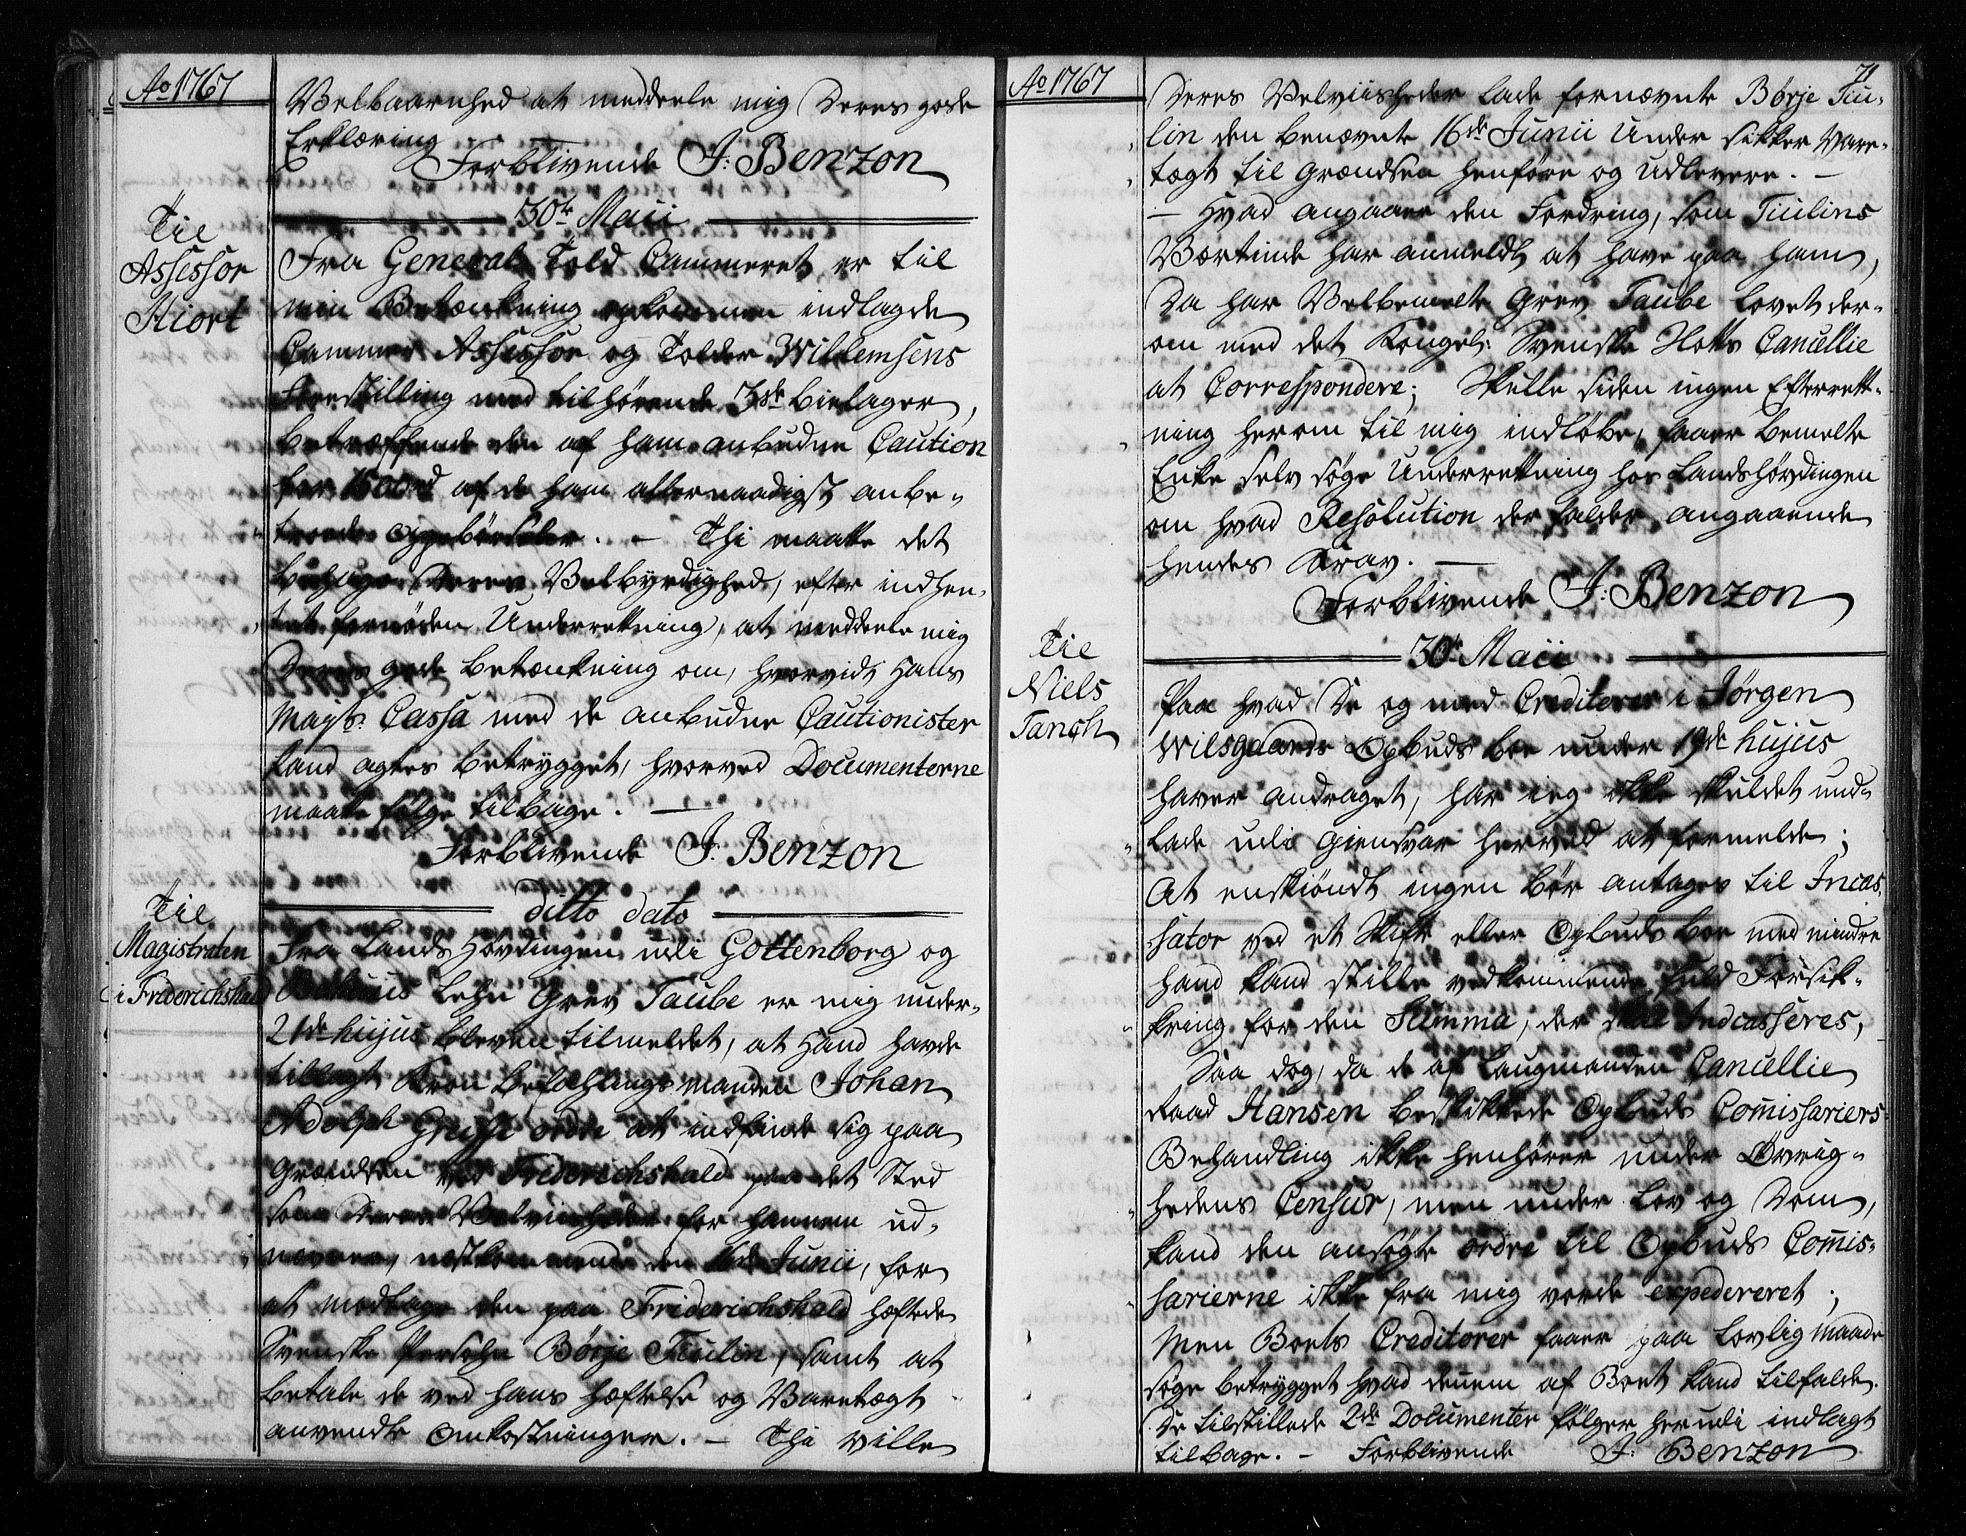 Ao 1767
Velbaarnhed at meddeele mig Deres gode
Erklæring
Forblivende J: Benzon
30te Maii
Til
Assessor
Hiort
Fra General Told Cammeret er til
min Betænkning indlagde
Cammer Assessor og Tolder Willemsens
Forestilling med tilhørende 3de bielager,
betræffende den af ham anbudne Caution
for 1500 rd af de ham allernaadigst anbe-
troede Oppebørseler. - Thi maatte det
behage Deres Velbyrdighed, efter indhen-
tet fornøden Underretning, at meddeele mig
Deres gode betænkning om, hvorvidt Hans
Mays: Cassa med de anbudne Cautionister
kand agtes betrygget, hvorved Documenterne
maatte følge tilbage. -
Forblivende J: Benzon
ditto dato
Til
Magistraten
i Friderichshald
Fra Lands Høvdingen udi Gottenborg og
Bahuus Lehn Grev Taube er mig under
21de hujus bleven tilmeldet, at Hand havde
tillagt Cron befahlings manden Johan
Adolph ordre at indfinde sig paa
Grændsen ved Friderichshald paa det Sted
som Deres Velviisheder for hannem ud-
nævner, nestkommende den 16de Junii, for
at modtage den paa Friderichshald hæftede
Svenske Persohn Børje Tiulin, samt at
betale de ved hans hæftelse og Varetægt
anvendte Omkostninger. - Thi ville
Ao 1767
71
Deres Velviisheder lade fornævnte Børje Tiu-
lin den benævnte 16de Junii under sikker Vare-
tægt til Grændsen henføre og udlevere. -
- Hvad angaaer den Fordring, som Tiulins
Værtinde har anmeldt at have paa ham,
Da har Velbemelte Grev Taube lovet der-
om med det Kongel: Svenske Hoffs Cancellie
at Correspondere; Skulle siden ingen Efterrett-
ning herom til mig indløbe, faaer bemelte
Enke selv søge Underretning hos Landshøvdingen
om hvad Resolution der falder angaaende
hendes Krav. -
Forblivende J: Benzon
30te Maii
Til
Niels
Tanch
Paa hvad De og med Creditorer i Jørgen
Wilsgaards Opbuds boe under 19de hujus
haver andraget, har ieg ikke skuldet und-
lade udi giensvar herved at formelde;
At enskiøndt ingen bør antages til Incas-
sator ved et Skifte eller Opbuds boe med mindre
hand kand stille vedkommende fuld Forsik-
kring for den Summa, der skal Indcasseres,
Saa dog, da de af Laugmanden Cancellie
Raad Hansen beskikkede Opbuds Comissariers
Behandling ikke henhører under Øvrig-
hedens Censur, men under Lov og Dom,
kand den ansøgte ordre til Opbuds Comis-
sarierne ikke fra mig vorde expedereret;
Men Boets Creditorer faaer paa Lovlig maade
søge betrygget hvad dennem af Boet kand tilfalde.
De tilstillede 2de Documenter følger herudi indlagt
tilbage. - Forblivende J: Benzon